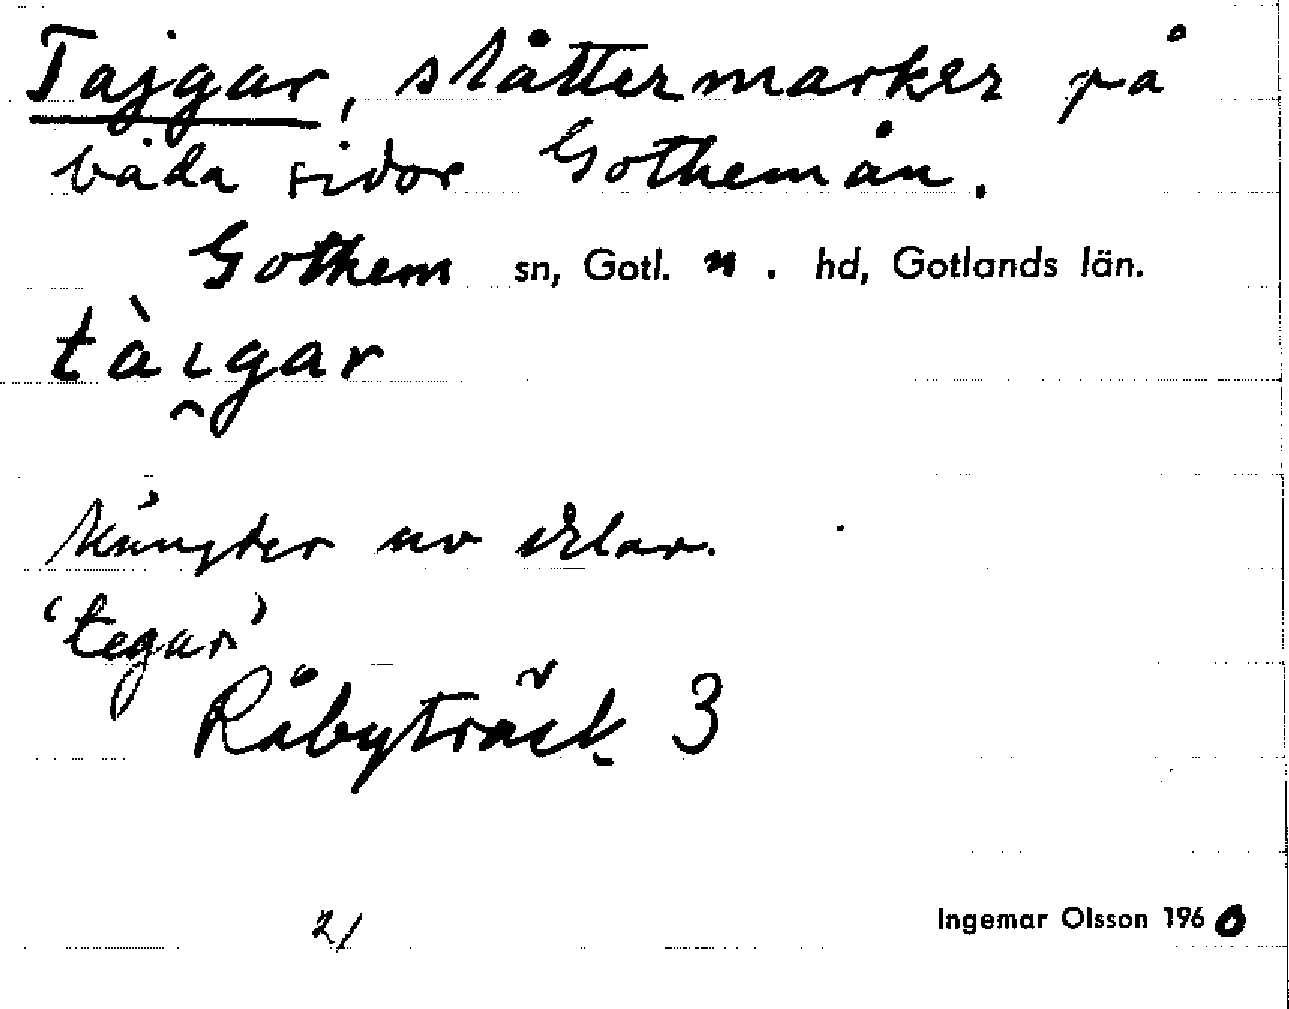 Tajgar, slåttermarker på
båda sidor Gothemån.
Gothem sn, Gotl. n. hd, Gotlands län.
tàı̯gar
av
'tegar'
Råbyträsk 3
2/
Ingemar Olsson 1960